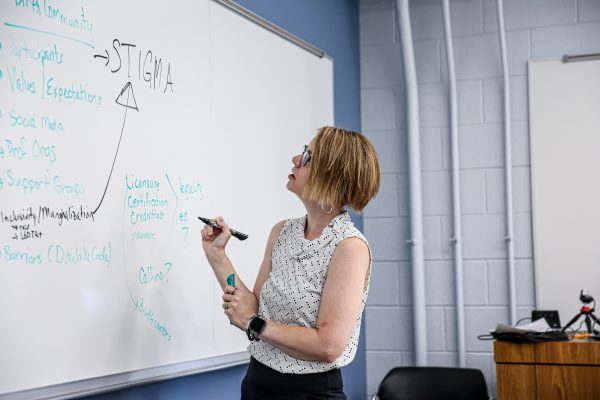 Birth Community
→ STIGMA
Participants
Values/Expectations
Social Media
Prof Orgs
Support Groups
Inclusivity/Marginalization
Barriers (Double Code)
Licensure
Certification
Credentials
legality
ed
?
Calling?